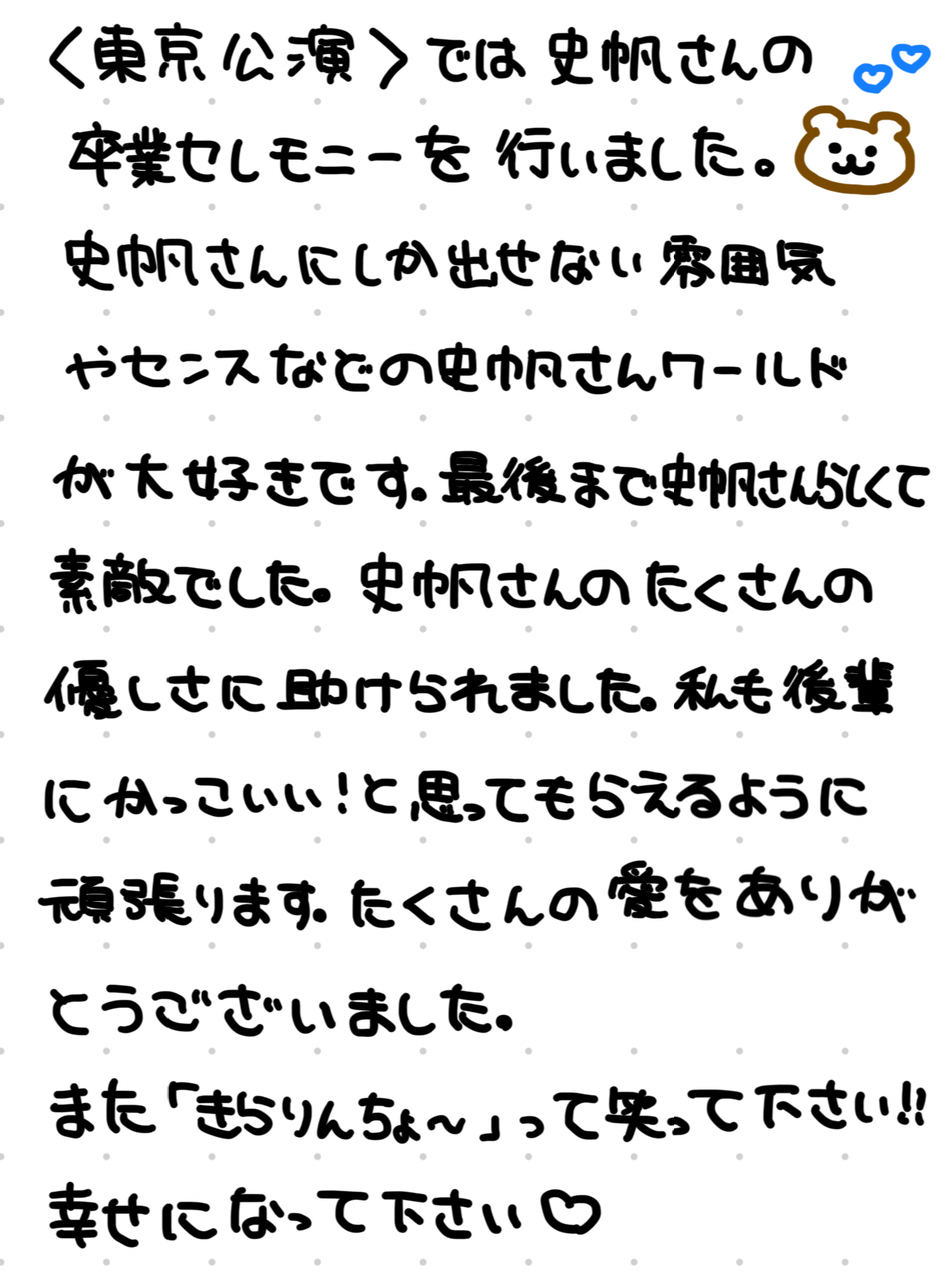 〈東京公演〉では史帆さんの
卒業セレモニーを行いました。
史帆さんにしか出せない雰囲気
やセンスなどの史帆さんワールド
が大好きです。最後まで史帆さんらしくて
素敵でした。史帆さんのたくさんの
優しさに助けられました。私も後輩
にかっこいい!と思ってもらえるように
頑張ります。たくさんの愛をありが
とうございました。
また「きらりんちょ〜」って笑って下さい!!
幸せになって下さい♡